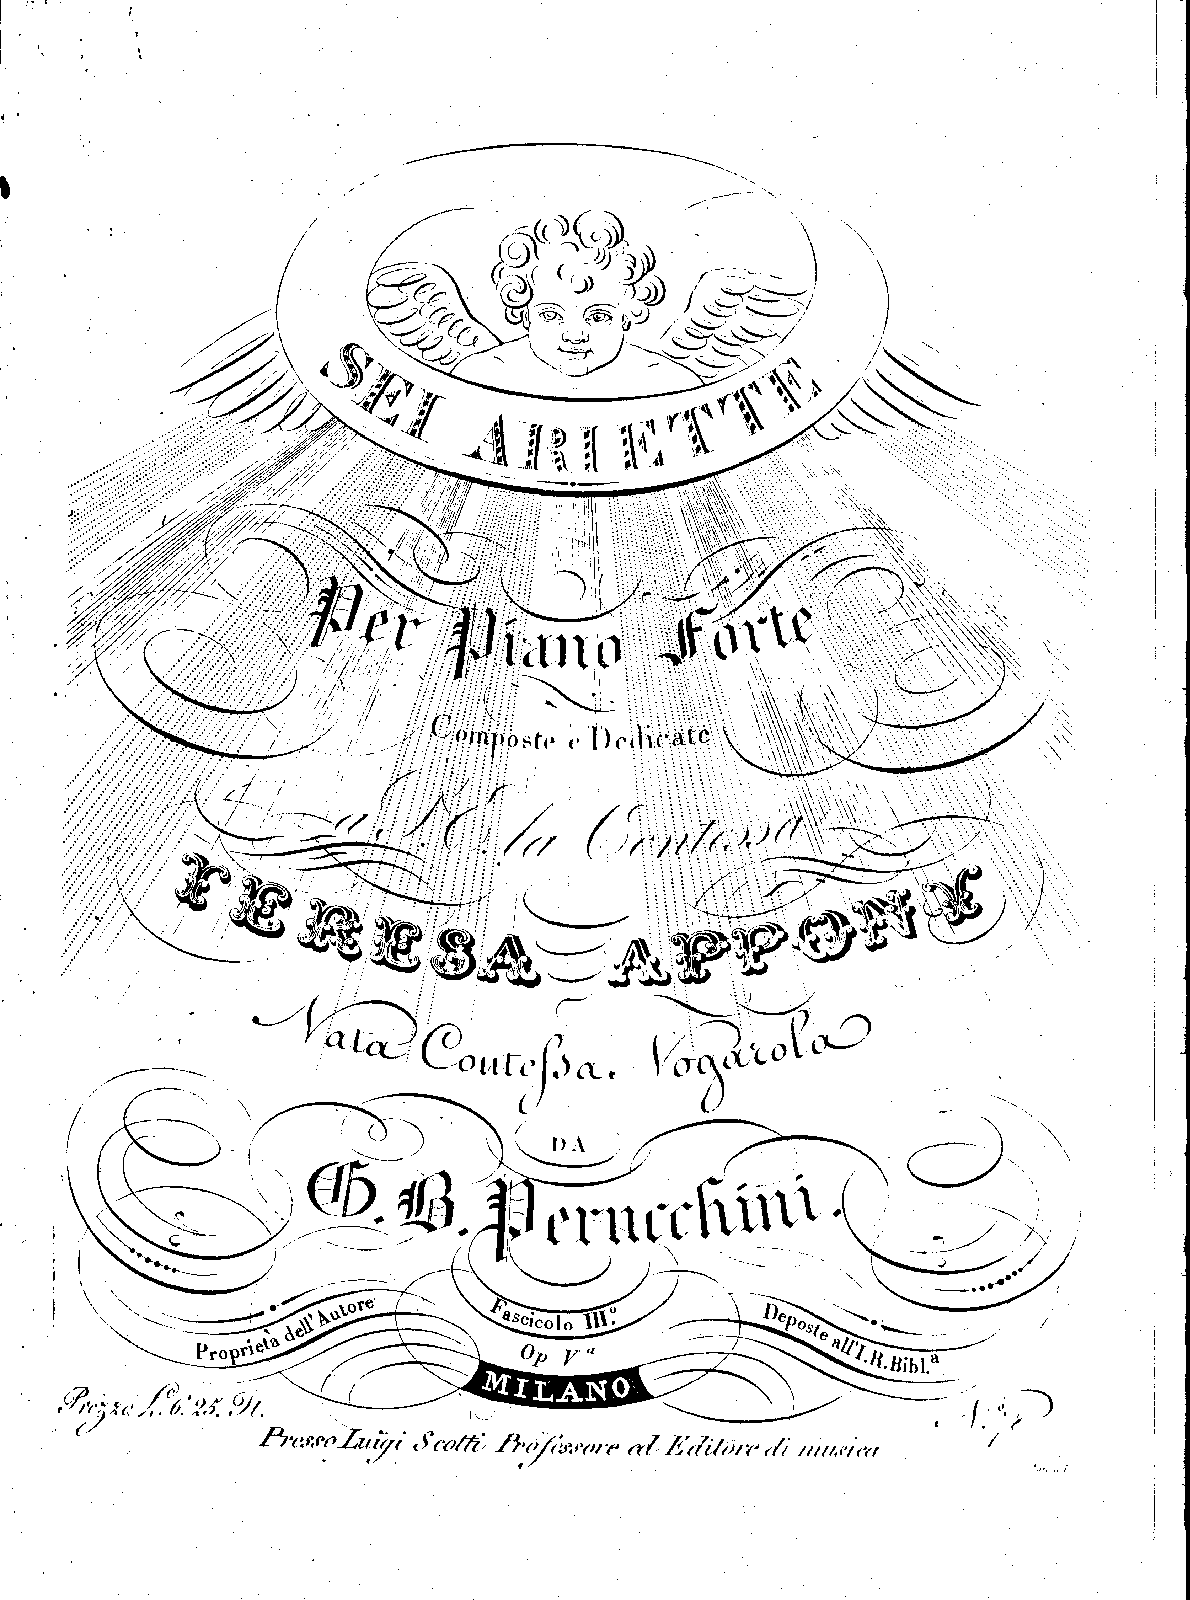 SEI ARIETTE
Per Piano Forte
Composte e Dedicate
a S. E. la Contessa
TERESA APPONY
Nata Contessa Nogarola
DA
G. B. Perucchini.
Proprietà dell'Autore
Fascicolo III.º
Deposte all'I. R. Bibl.ª
Op Vª
MILANO
Prezzo L. 6. 25. It.
Presso Luigi Scotti Professore ed Editore di musica